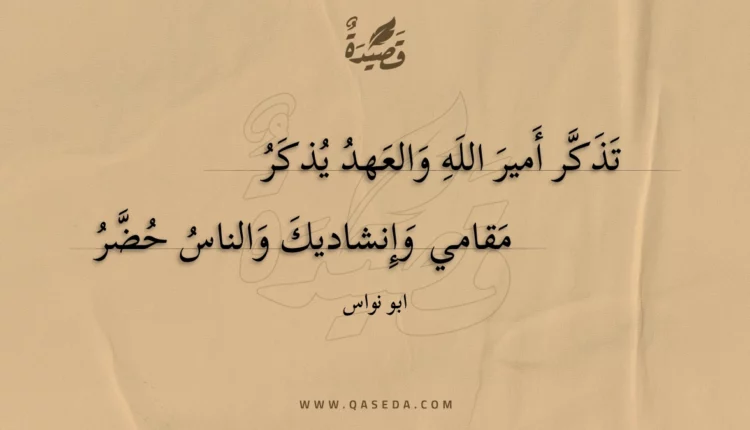 قَصِيْدَةٌ
تَذَكَّر أَميرَ اللَهِ وَالعَهدُ يُذكَرُ
مَقامي وَإِنشاديكَ وَالناسُ حُضَّرُ
ابو نواس
WWW.QASEDA.COM